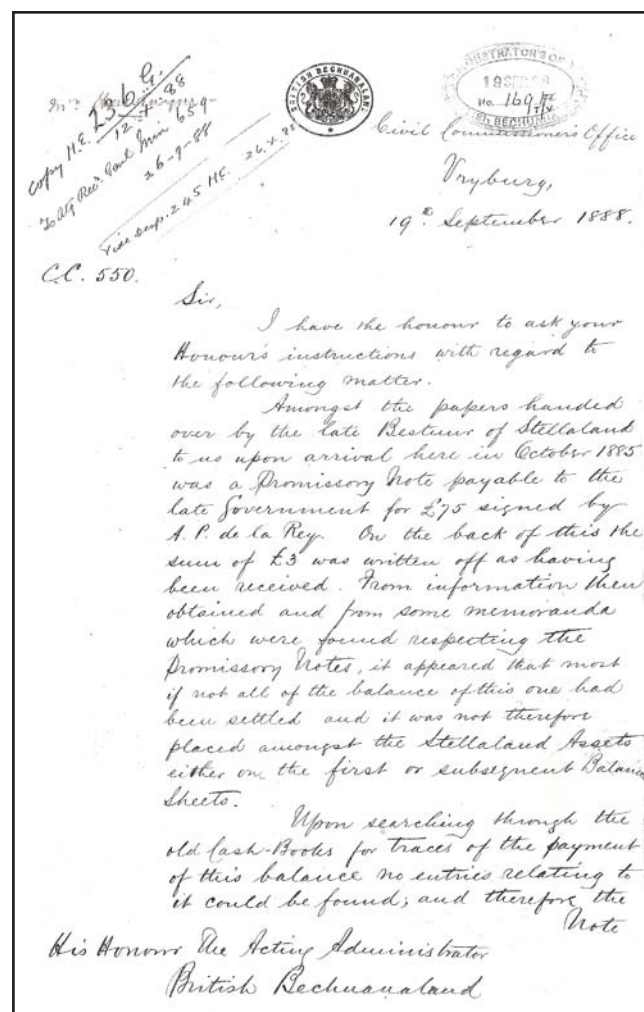 Copy H.E. 236 G.
12.X.88
To Atg Recr. Genl Min 659
26-9-88
Vide desp. 245 H.E. 26.X.88
BRITISH BECHUANALAND
ADMINISTRATOR'S
19 SEP 88
No. 169
BECHUANALAND
Civil Commissioner's Office
Vryburg,
19th September 1888.
C.C. 550.
Sir,
I have the honour to ask your
Honour's instructions with regard to
the following matter.
Amongst the papers handed
over by the late Bestuur of Stellaland
to us upon arrival here in October 1885
was a Promissory Note payable to the
late Government for £75 signed by
A. P. de la Rey. On the back of this the
sum of £3 was written off as having
been received. From information then
obtained and from some memoranda
which were found respecting the
Promissory Notes, it appeared that most
if not all of the balance of this one had
been settled and it was not therefore
placed amongst the Stellaland Assets
either on the first or subsequent Balance
Sheets.
Upon searching through the
old Cash-Books for traces of the payment
of this balance no entries relating to
it could be found; and therefore the
Note
His Honour The Acting Administrator
British Bechuanaland